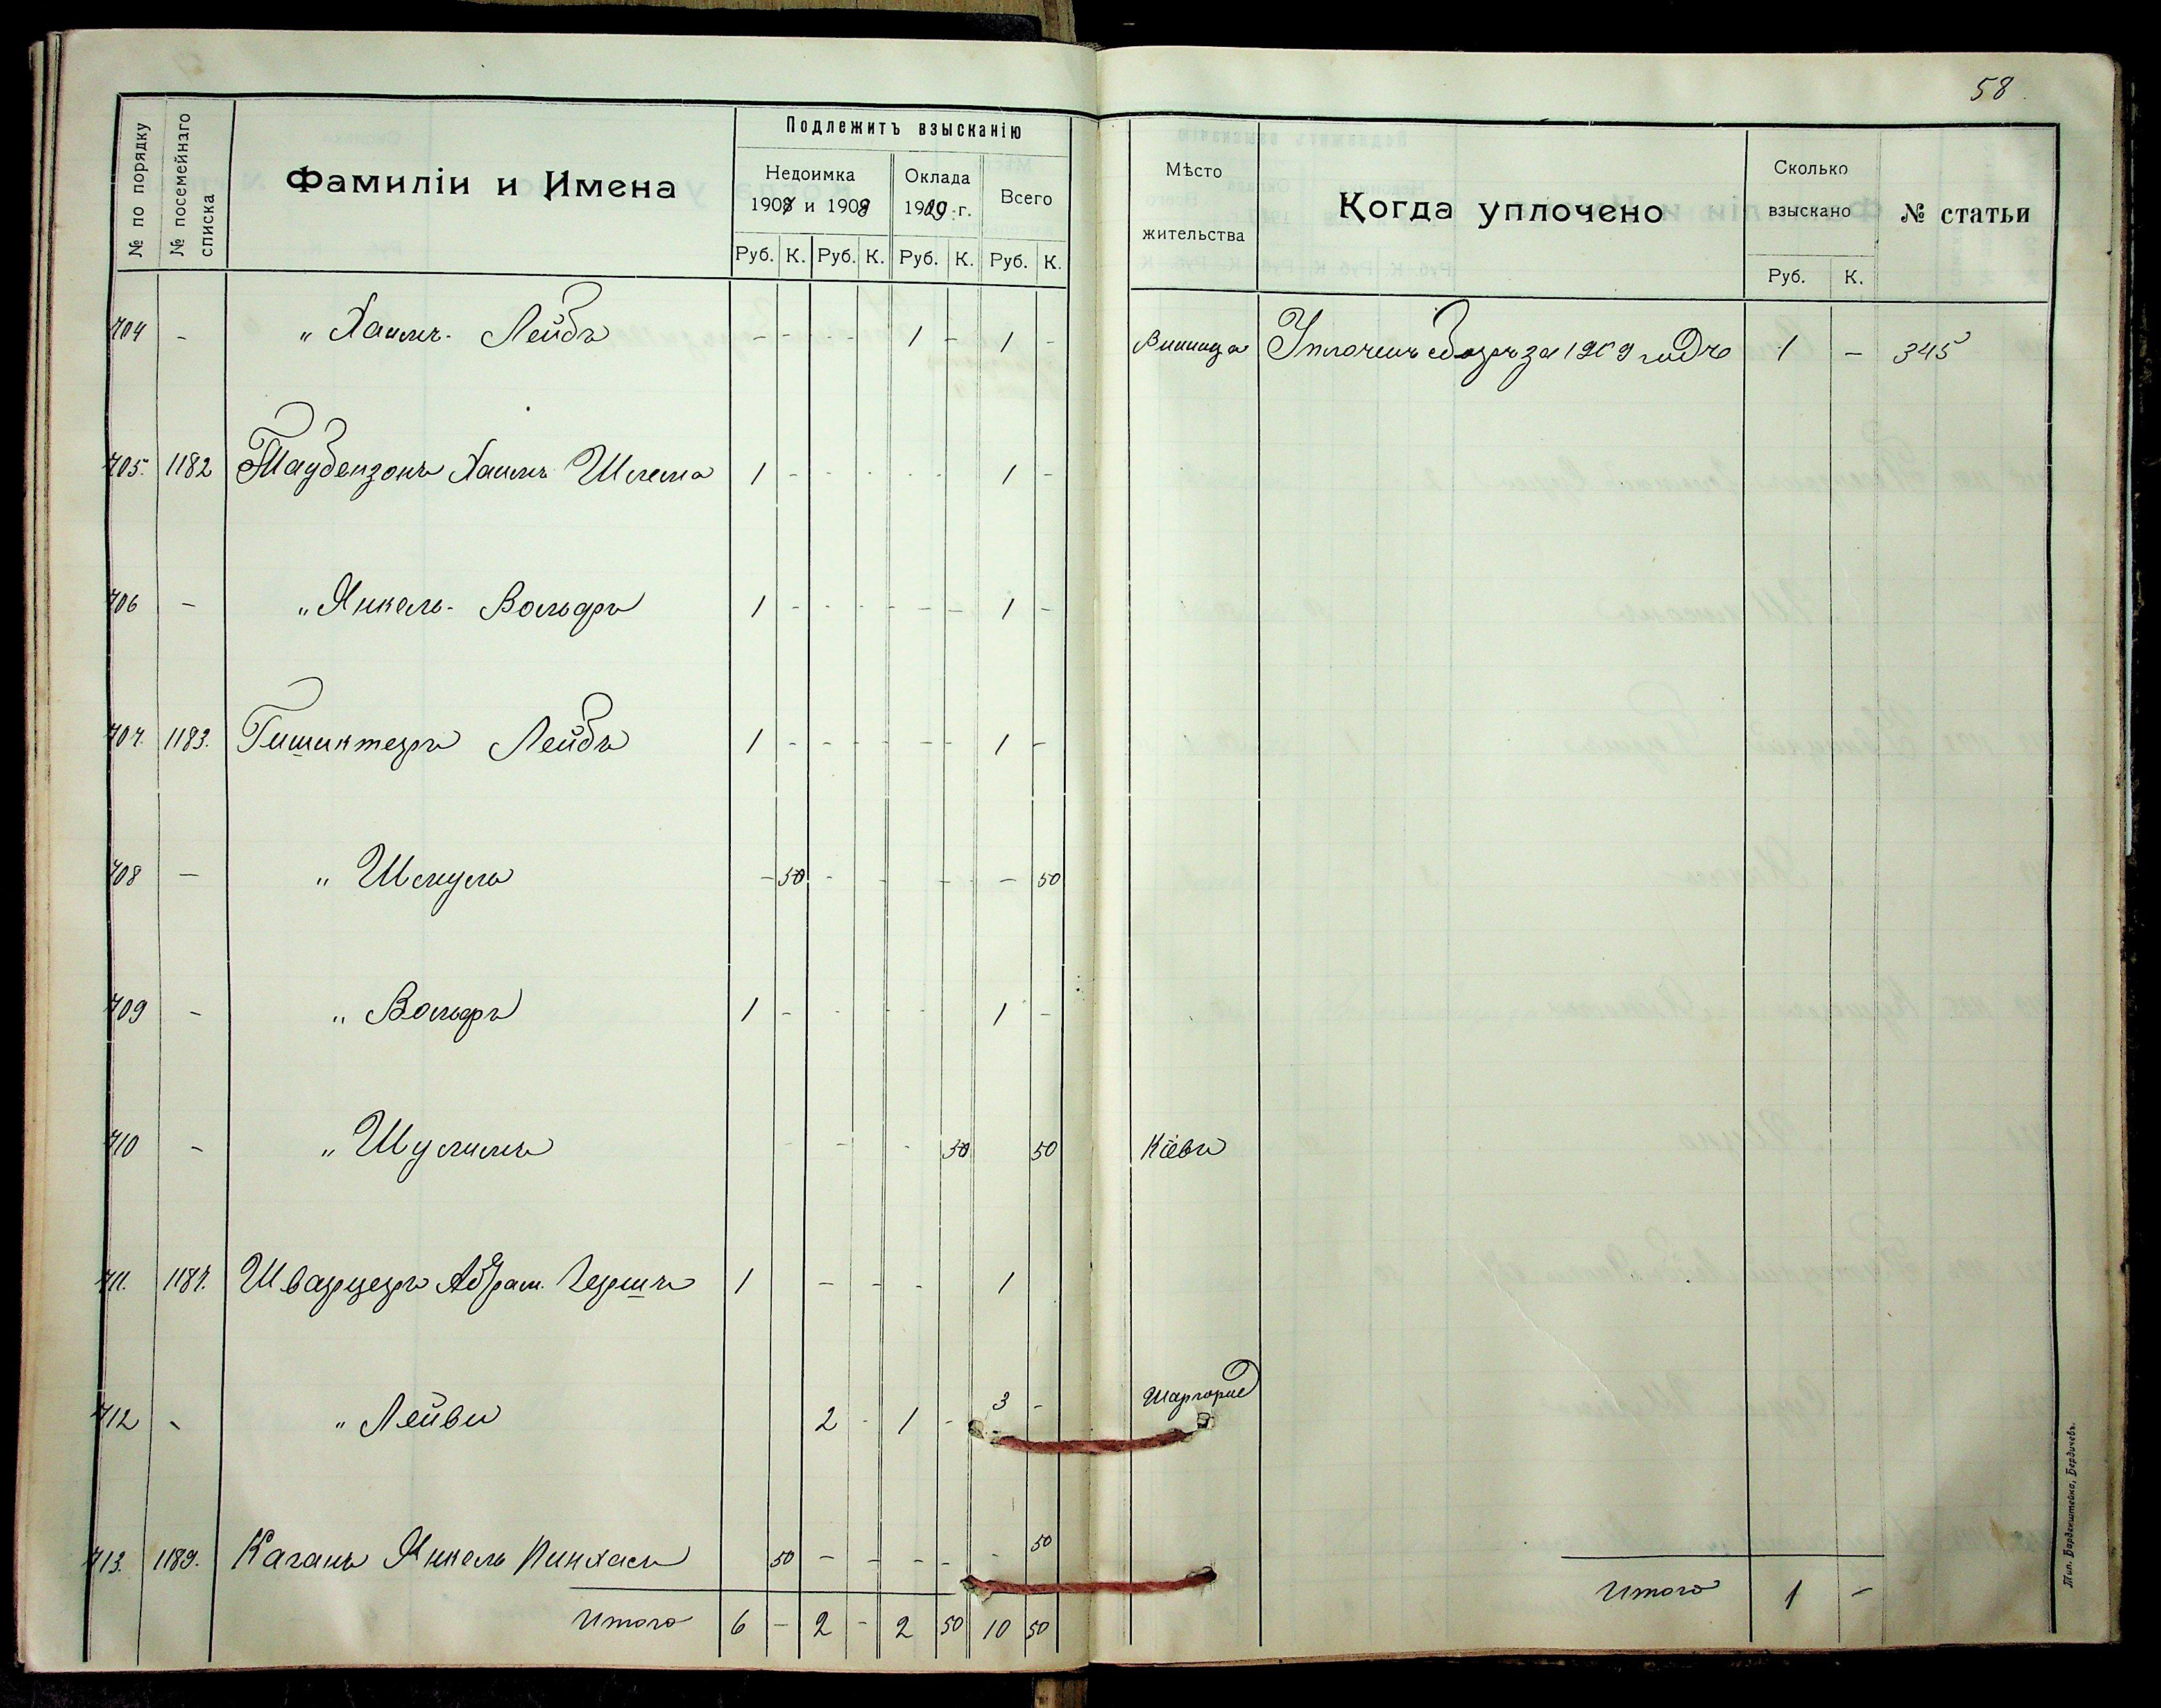 58.
№ по порядку
№ посемейнаго списка
Фамиліи и Имена
Подлежитъ взысканію
Недоимка 1907 и 1908
Оклада 1909 г.
Всего
Руб. К. Руб. К. Руб. К. Руб. К.
Мѣсто жительства
Когда уплочено
Сколько взыскано
Руб. К.
№ статьи
704 - " Хаимъ-Лейбъ - - - - 1 - 1 - Винница Уплоченъ сборъ за 1909 годъ 1 - 345
705. 1182 Таубензонъ Хаимъ Шлема 1 - - - - - 1 -
706 - " Янкель-Вольфъ 1 - - - - - 1 -
707. 1183. Гишиктеръ Лейбъ 1 - - - - - 1 -
708 - " Шмуль - 50 - - - - - 50
709 - " Вольфъ 1 - - - - 1 -
710 - " Шулимъ - - - 50 50 Кіевъ
711. 1187. Шварцеръ Абрам. Гершъ 1 - - - 1
712 - " Лейви 2 - 1 - 3 - Шаргород
713. 1189. Каганъ Янкель Пинхасъ 50 - - - - - 50
Итого 6 - 2 - 2 50 10 50
Итого 1 -
Тип. Барденштейна, Бердичевъ.